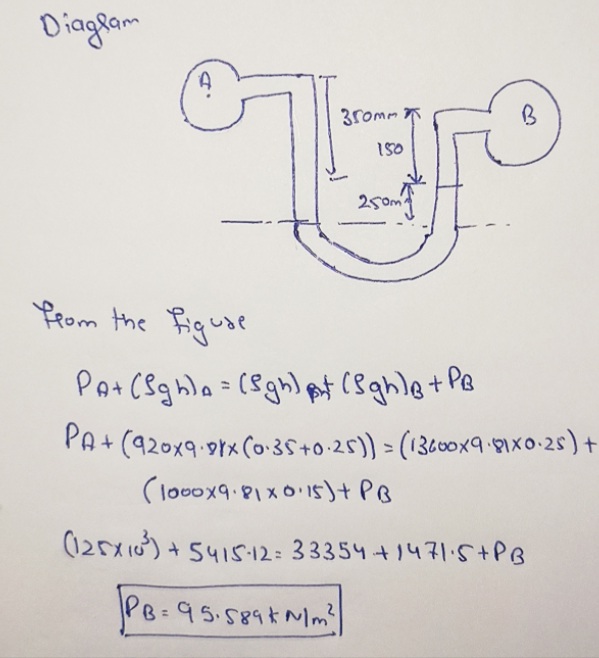 Diagram
A
350mm
B
150
250m
from the figure
PA + (ρgh)A = (ρgh) + (ρgh)B + PB
PA + (920×9.81×(0.35+0.25)) = (13600×9.81×0.25) +
(1000×9.81×0.15) + PB
(125×10³) + 5415.12 = 33354 + 1471.5 + PB
PB = 95.589kN/m²